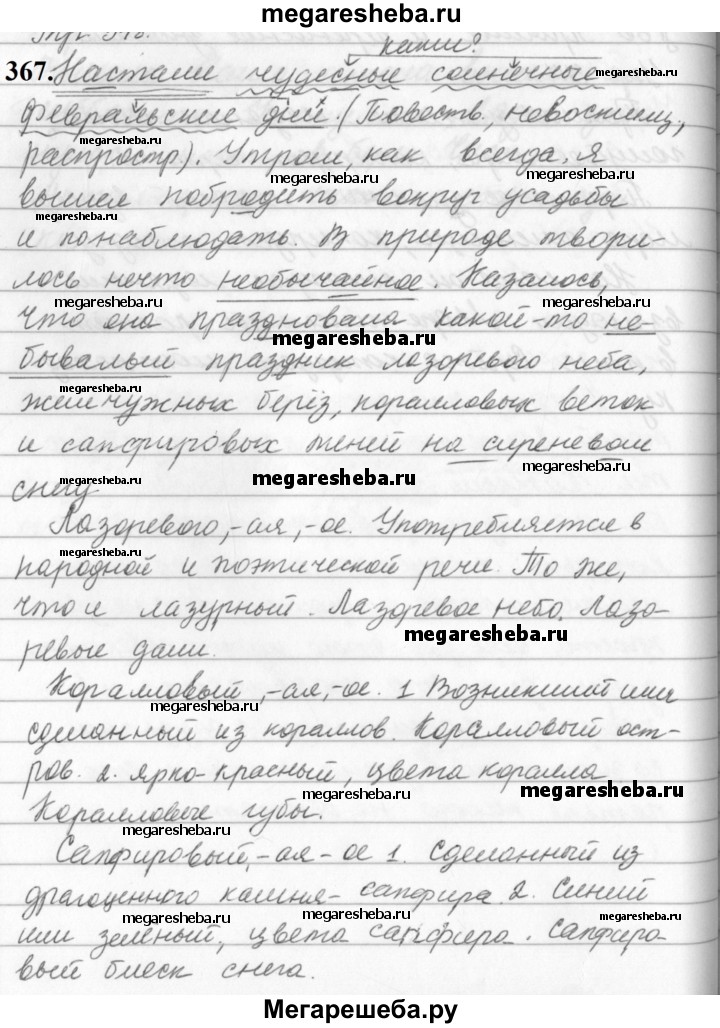 megaresheba.ru
какие?
367. Настали чудесные солнечные
megaresheba.ru
февральские дни. (Повеств., невосклиц.,
megaresheba.ru
распростр.). Утром, как всегда, я
megaresheba.ru
вышел побродить вокруг усадьбы
megaresheba.ru
и понаблюдать. В природе твори-
лось нечто необычайное. Казалось,
megaresheba.ru megaresheba.ru
что она праздновала какой-то не-
megaresheba.ru
бывалый праздник лазоревого неба,
megaresheba.ru
жемчужных берёз, коралловых веток
и сапфировых теней на сиреневом
megaresheba.ru
megaresheba.ru megaresheba.ru
снегу
Лазоревого, -ая, -ое. Употребляется в
megaresheba.ru
народной и поэтической речи. То же,
что и лазурный. Лазоревое небо. Лазо-
megaresheba.ru
ревые дали.
Коралловый, -ая, -ое. 1 Возникший или
megaresheba.ru
сделанный из кораллов. Коралловый ост-
ров. 2. ярко-красный, цвета коралла
megaresheba.ru megaresheba.ru
Коралловые губы.
megaresheba.ru
Сапфировый, -ая -ое 1. Сделанный из
драгоценного камня - сапфира 2. Синий
megaresheba.ru megaresheba.ru megaresheba.ru
или зеленый, цвета сапфира. Сапфиро-
вый блеск снега.
Мегарешеба.ру